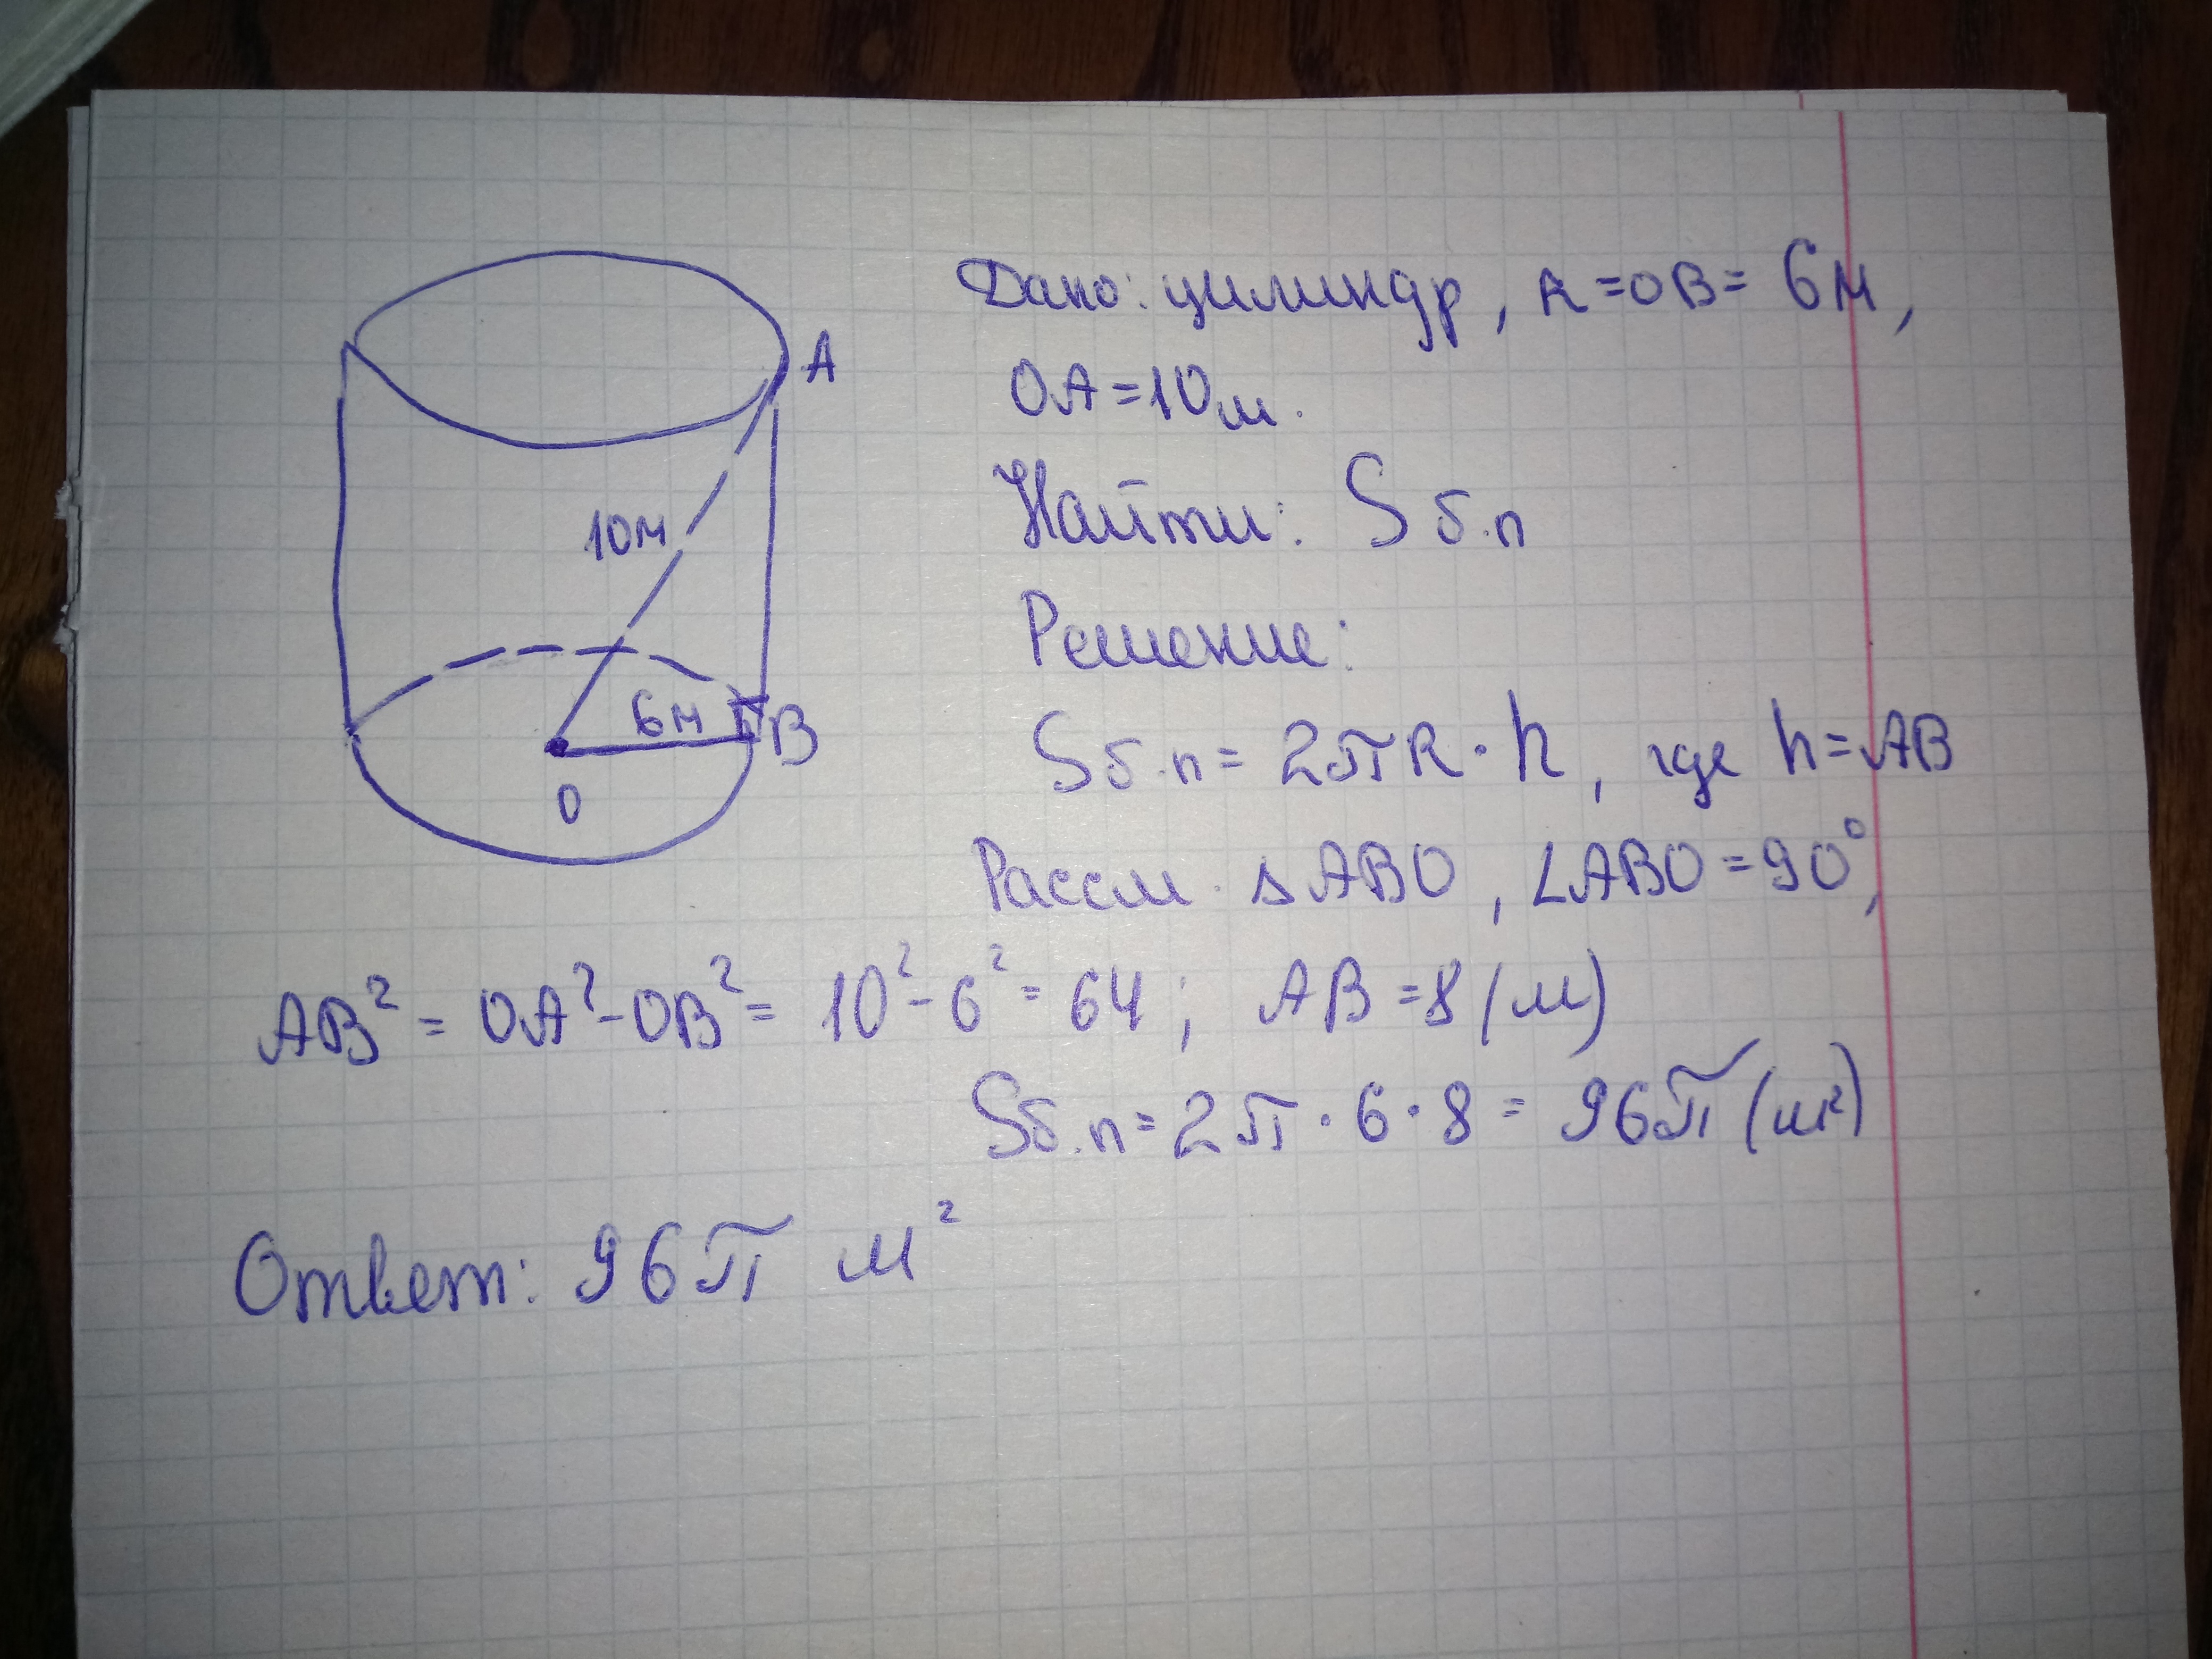 Дано: цилиндр, R=OB=6м,
A
OA=10м.
10м
Найти: Sб.п
Решение:
6м
B
O
Sб.п=2πR·h, где h=AB
Рассм. ΔABO, ∠ABO=90°,
AB²=OA²-OB²=10²-6²=64; AB=8(м)
Sб.п=2π·6·8=96π(м²)
Ответ: 96π м²